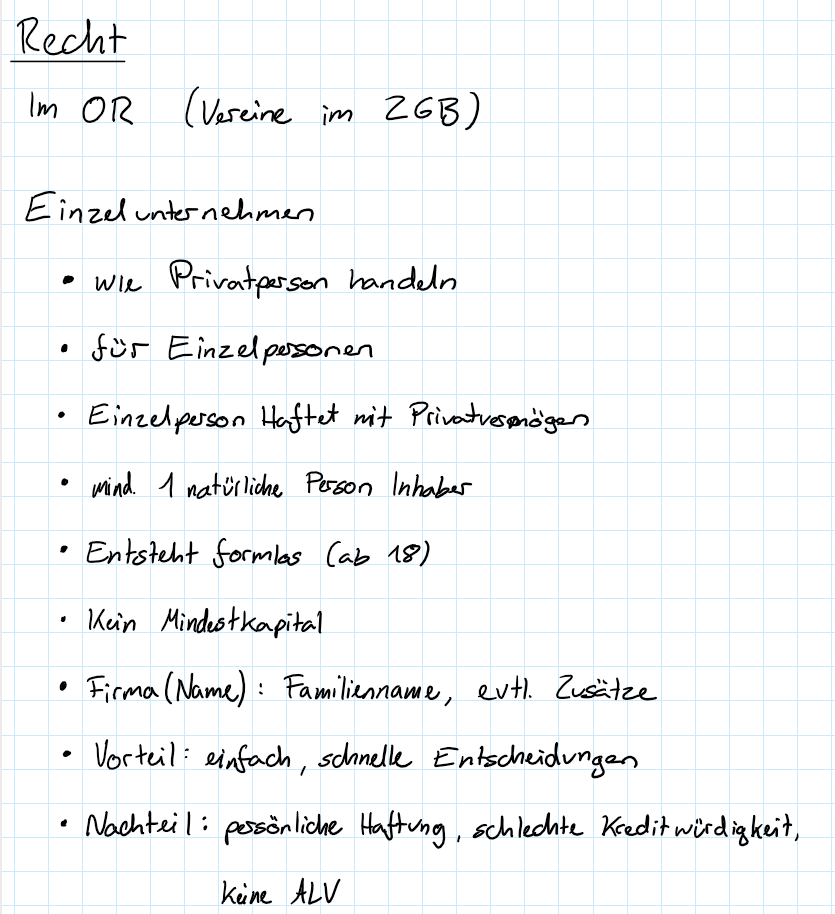 Recht
Im OR (Vereine im ZGB)
Einzelunternehmen
• wie Privatperson handeln
• für Einzelpersonen
• Einzelperson Haftet mit Privatvermögen
• mind. 1 natürliche Person Inhaber
• Entsteht formlos (ab 18)
• Kein Mindestkapital
• Firma (Name): Familienname, evtl. Zusätze
• Vorteil: einfach, schnelle Entscheidungen
• Nachteil: persönliche Haftung, schlechte Kreditwürdigkeit,
keine ALV